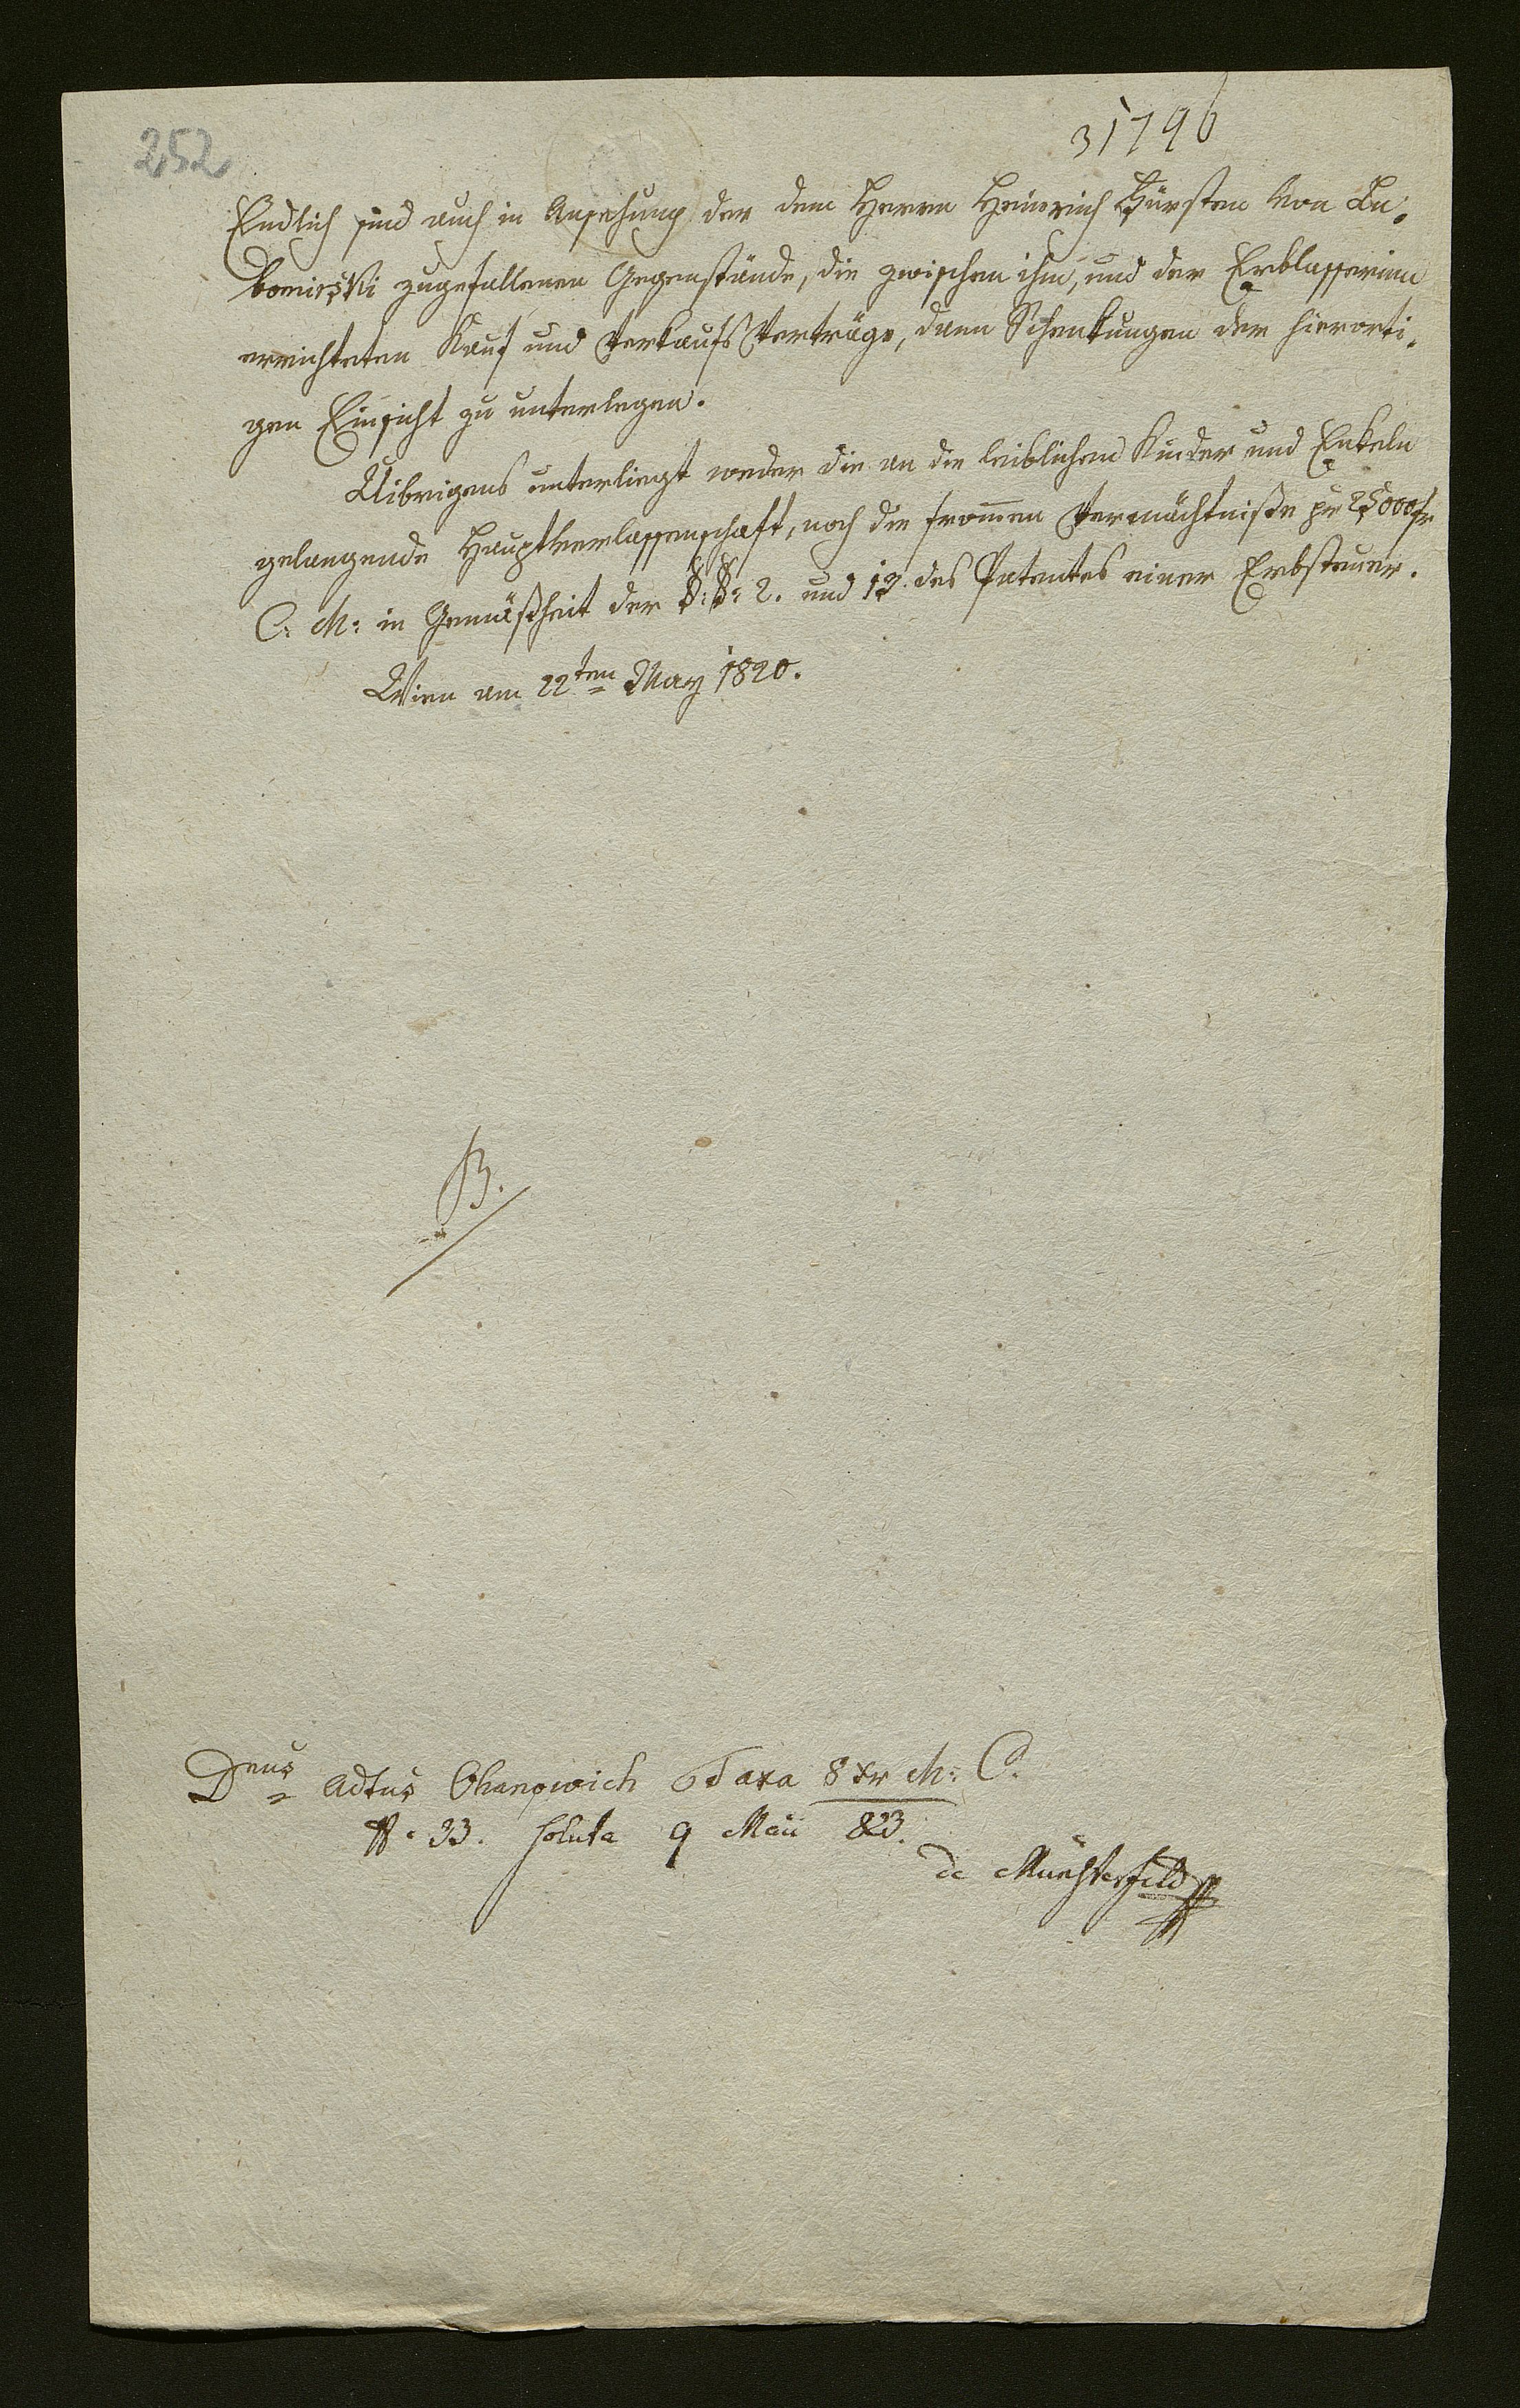 252
31796
Endlich sind auch in Ansehung der dem Herrn Heinrich Fürsten von Lu-
bomirski zugefallenen Gegenstände, die zwischen ihm, und der Erblasserinn
errichteten Kauf und Verkaufs Verträge, dann Schenkungen der hierorti-
gen Einsicht zu unterlegen.
Uibrigens unterliegt weder die an die leiblichen Kinder und Enkeln
gelangende Hauptverlassenschaft, noch die from̄en Vermächtniße pr 25000 fr
C: M: in Gemäßheit der §: §: 2. und 13. des Patentes einer Erbsteuer.
Wien am 22ten May 1820.
B.
Dnus Adtus Ohanowich Taxa 8 xr M: C.
33. soluta 9 Maii 823.
de Münsterfeld